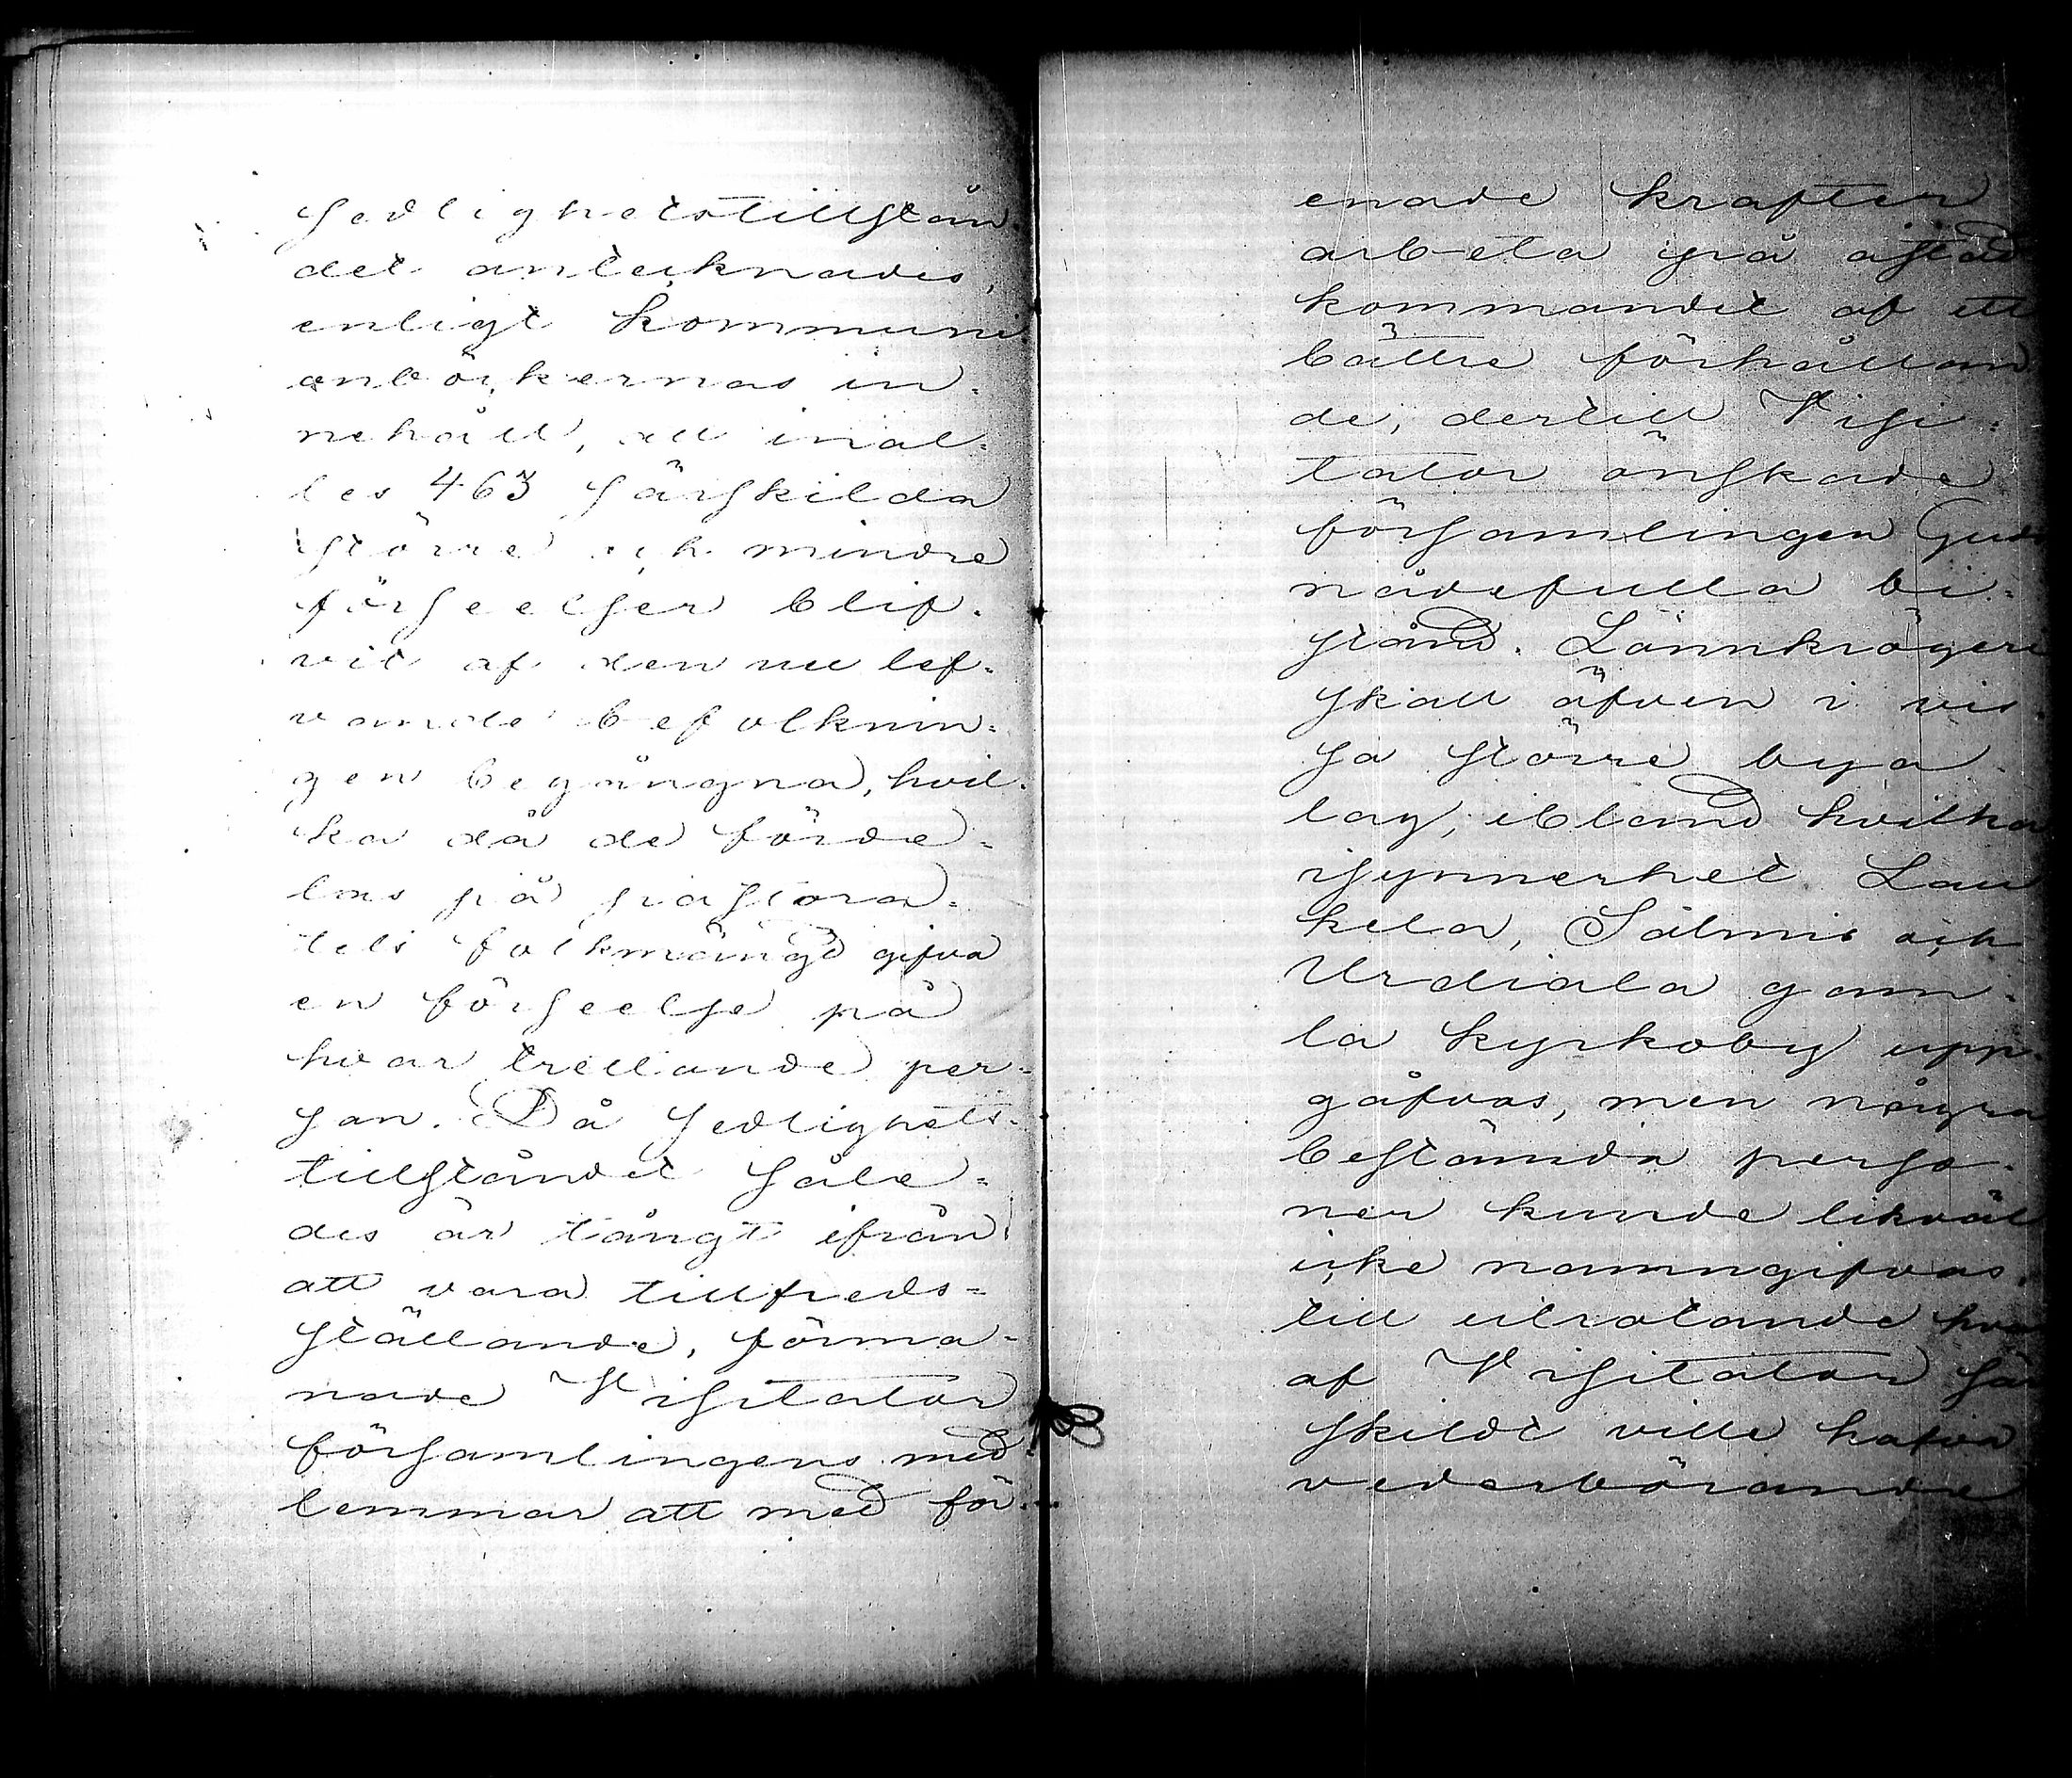 Sedlighetstillstån-
det antecknades,
enligt Kommuni
onböckernas in-
nehåll, att inal-
les 463 särskilda
större och mindre
förseelser blif-
vit af den nu lef-
vande befolknin-
gen begångna, hvil-
ka då de förde-
las på pastora-
tets folkmängd gifva
en förseelse på
hvar trettonde per-
son. Då sedlighets-
tillståndet såle-
des är långt ifrån
att vara tillfreds-
ställande, förma-
nade Visitator
församlingens med
lemmar att med för-
enade krafter
arbeta på åstad
kommandet af ett
bättre förhållan
de, dertill Visi-
tator önskade
församlingen Guds
nådefulla bi-
stånd. Lönnkrögeri
skall äfven i vis-
sa större bya-
lag, ibland hvilka
isynnerhet Lau
kela, Salmis och
Urdiala gam-
la kyrkoby upp-
gåfvos, men några
bestämda perso-
ner kunde likväl
icke namngifvas,
till utrotande hvar
af Visitator sär
skildt ville hafva
vederbörande